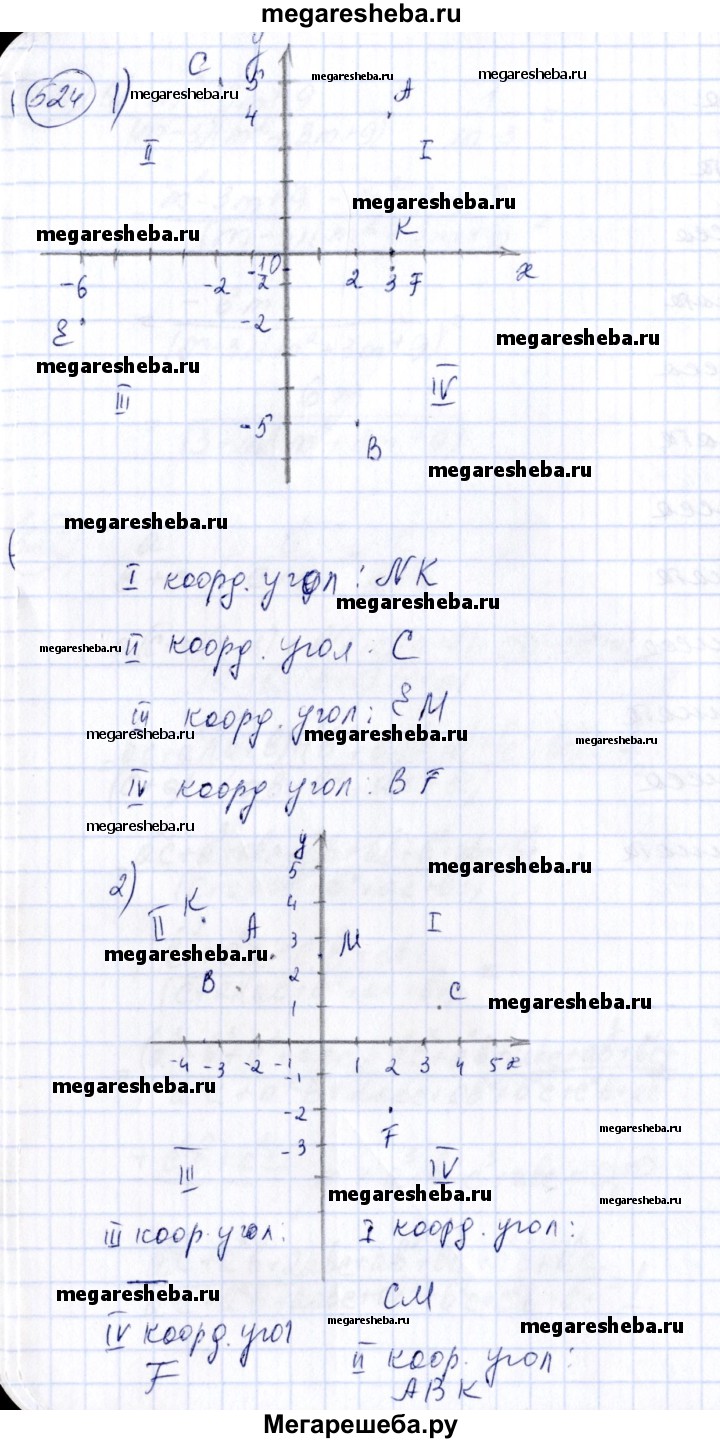 megaresheba.ru
C y
524 1) megaresheba.ru 5 megaresheba.ru A megaresheba.ru
4
II I
megaresheba.ru
K
megaresheba.ru
0
-6 -2 2 3 F x
E -2
megaresheba.ru
megaresheba.ru
III IV
-5
B
megaresheba.ru
megaresheba.ru
I коорд. угол: NK
megaresheba.ru
megaresheba.ru II коорд. угол: C
III коорд. угол: E M
megaresheba.ru megaresheba.ru megaresheba.ru
IV коорд. угол: B F
megaresheba.ru
y
5 megaresheba.ru
2)
K 4
II A I
3 M
megaresheba.ru
B 2
C
1 megaresheba.ru
-4 -3 -2 -1 1 2 3 4 5 x
-1
megaresheba.ru
-2
F megaresheba.ru
-3
III IV
megaresheba.ru megaresheba.ru
III коор. угол: I коорд. угол:
—
megaresheba.ru CM
IV коорд. угол megaresheba.ru megaresheba.ru
F II коор. угол:
A B K
Мегарешеба.ру